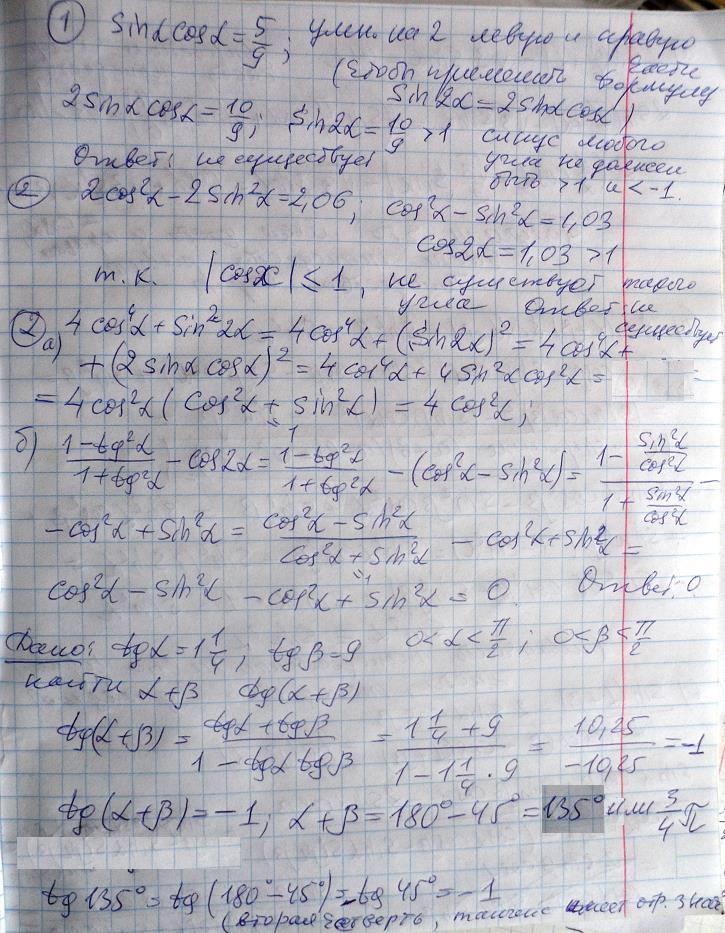 ① sinα cosα = 5/9; умн. на 2 левую и правую части
(чтобы применить формулу
sin2α = 2sinα cosα)
2sinα cosα = 10/9; sin2α = 10/9 > 1 синус любого
Ответ: не существует угла не должен
быть >1 и < -1.
② 2cos²α - 2sin²α = 2,06; cos²α - sin²α = 1,03
cos2α = 1,03 > 1
т.к. |cosx| ≤ 1, не существует такого
угла Ответ: не существует
② а) 4cos⁴α + sin²2α = 4cos⁴α + (sin2α)² = 4cos⁴α +
+ (2sinα cosα)² = 4cos⁴α + 4sin²α cos²α =
= 4cos²α (cos²α + sin²α) = 4cos²α;
1
б) (1-tg²α)/(1+tg²α) - cos2α = (1-tg²α)/(1+tg²α) - (cos²α - sin²α) = (1 - sin²α/cos²α)/(1 + sin²α/cos²α) -
- cos²α + sin²α = (cos²α - sin²α)/(cos²α + sin²α) - cos²α + sin²α =
1
cos²α - sin²α - cos²α + sin²α = 0 Ответ: 0
Дано: tgα = 1 1/4; tgβ = 9 0<α<π/2; 0<β<π/2
найти α+β tg(α+β)
tg(α+β) = (tgα + tgβ)/(1 - tgα tgβ) = (1 1/4 + 9)/(1 - 1 1/4 · 9) = 10,25/-10,25 = -1
tg(α+β) = -1; α+β = 180° - 45° = 135° или 3/4 π
tg 135° = tg(180° - 45°) = -tg 45° = -1
(вторая четверть, тангенс имеет отр.